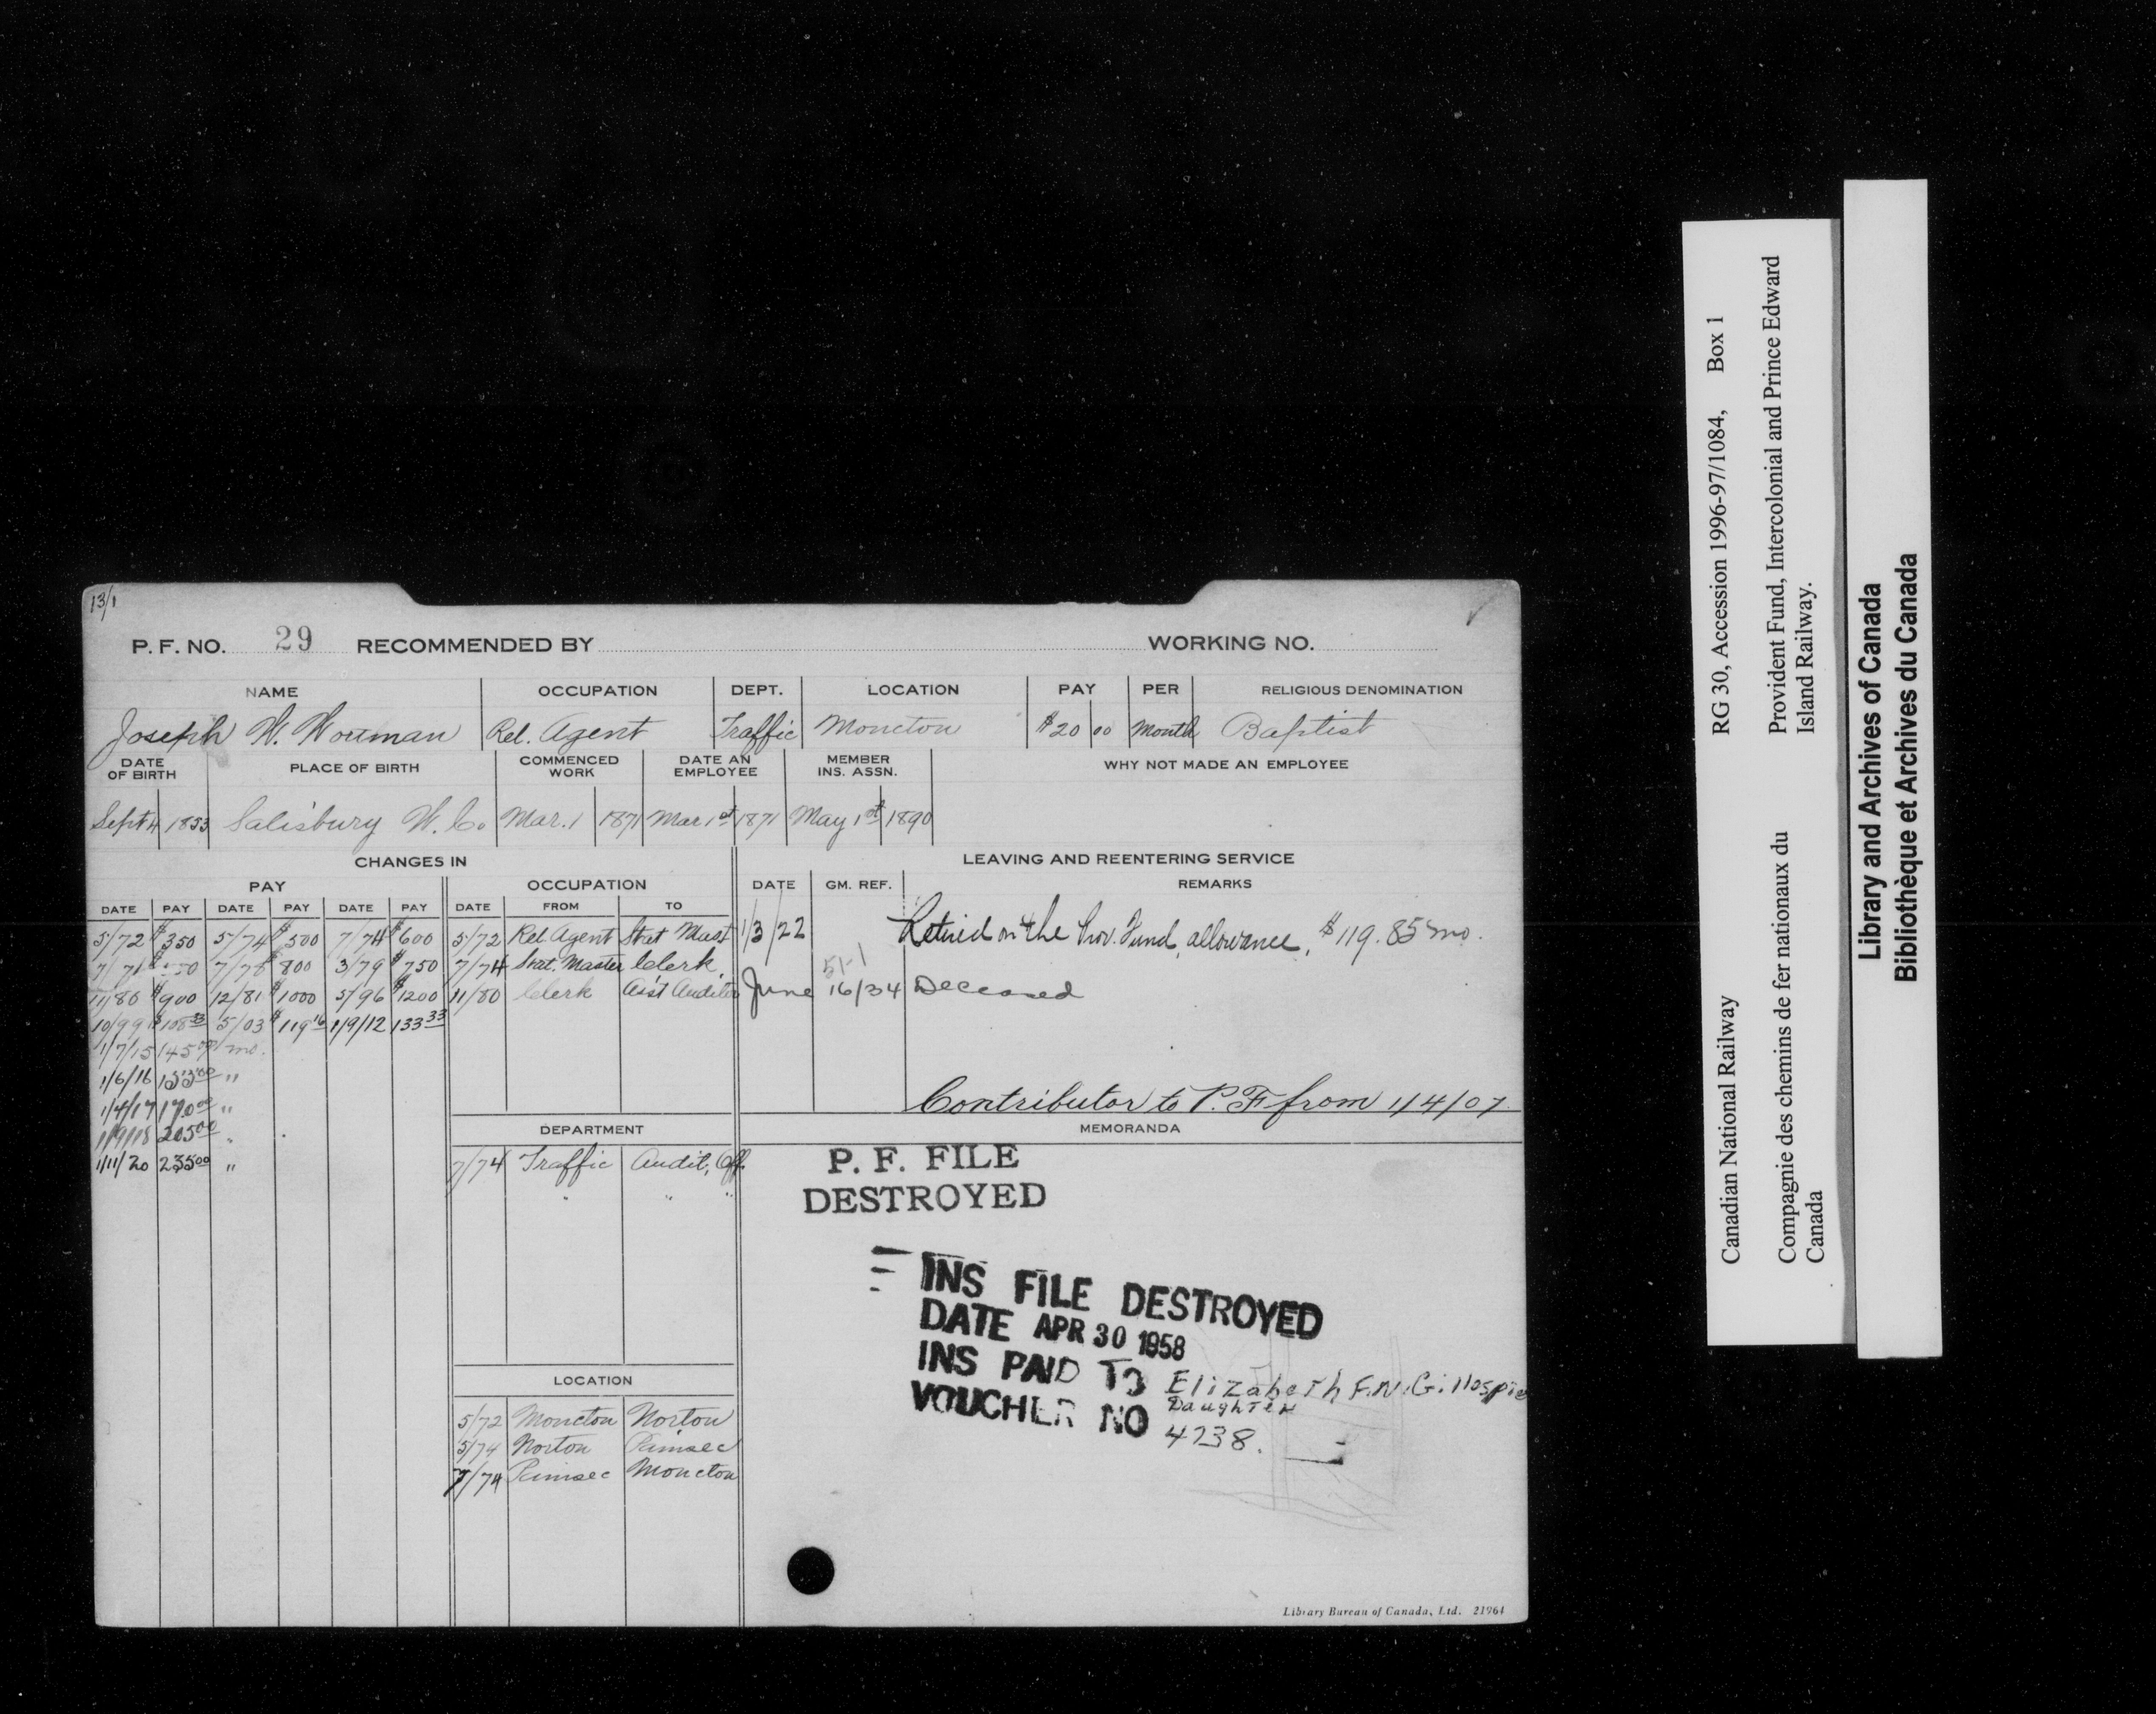 13/1
P. F. NO. 29 RECOMMENDED BY WORKING NO.
NAME OCCUPATION DEPT. LOCATION PAY PER RELIGIOUS DENOMINATION
Joseph W. Wortman Rel. Agent Traffic Moncton $20 00 Month Baptist
DATE OF BIRTH PLACE OF BIRTH COMMENCED WORK DATE AN EMPLOYEE MEMBER INS. ASSN. WHY NOT MADE AN EMPLOYEE
Sept 4 1853 Salisbury W. Co Mar. 1 1871 Mar 1st 1871 May 1st 1890
CHANGES IN LEAVING AND REENTERING SERVICE
PAY OCCUPATION DATE GM. REF. REMARKS
DATE PAY DATE PAY DATE PAY DATE FROM TO
5/72 $350 5/74 $500 7/74 $600 5/72 Rel. Agent Stat Mast 1/3/22 Retired on the Prov. Fund, allowance, $119.85 mo.
800 3/79 $750 7/74 Stat. Master Clerk
11/80 $900 12/81 $1000 5/96 $1200 11/80 Clerk Asst Auditor June 16/34 Deceased
10/99 $108 33 5/03 $119 16 1/9/12 133 33
1/7/15 145 00 mo.
1/6/16 00 "
1/4/17 170 00 "
1/9/18 205 00 "
1/11/20 235 00 "
Contributor to P. F from 1/4/07
DEPARTMENT MEMORANDA
7/74 Traffic Audit. Off.
" " "
P. F. FILE
DESTROYED
INS FILE DESTROYED
DATE APR 30 1958
INS PAID TO Elizabeth F.N. Gillospie
Daughter
VOUCHER NO 4238.
LOCATION
5/72 Moncton Norton
5/74 Norton
7/74 Moncton
Library Bureau of Canada, Ltd. 21964
RG 30, Accession 1996-97/1084, Box 1
Canadian National Railway
Provident Fund, Intercolonial and Prince Edward
Island Railway.
Compagnie des chemins de fer nationaux du
Canada
Library and Archives of Canada
Bibliothèque et Archives du Canada